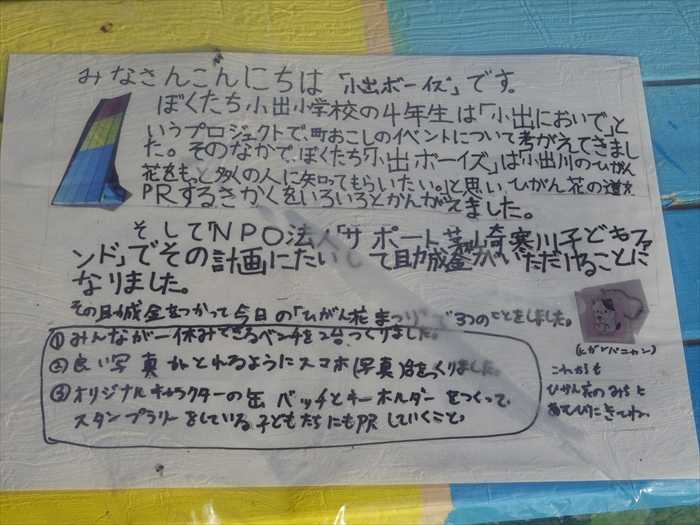 みなさんこんにちは「小出ボーイズ」です。
ぼくたち小出小学校の4年生は「小出においで」と
いうプロジェクトで、町おこしのイベントについて考がえてきまし
た。そのなかで、ぼくたち「小出ボーイズ」は「小出川のひがん
花をもっと多くの人に知ってもらいたい。」と思い、ひがん花の道を
PRするきかくをいろいろとかんがえました。
そして「NPO法人「サポート茅ヶ崎寒川子どもファ
ンド」でその計画にたいして助成金がいただけることに
なりました。
その助成金をつかって今日の「ひがん花まつり」で3つのことをしました。
①みんなが一休みできるベンチを2台つくりました。
②良い写真がとれるようにスマホ(写真)台をつくりました。
③オリジナルキャラクターの缶バッチとキーホルダーをつくって、
スタンプラリーをしている子どもたちにもPRしていくこと。
(ヒガンバニャン)
これからも
ひがん花のみちに
あそびにきてね。